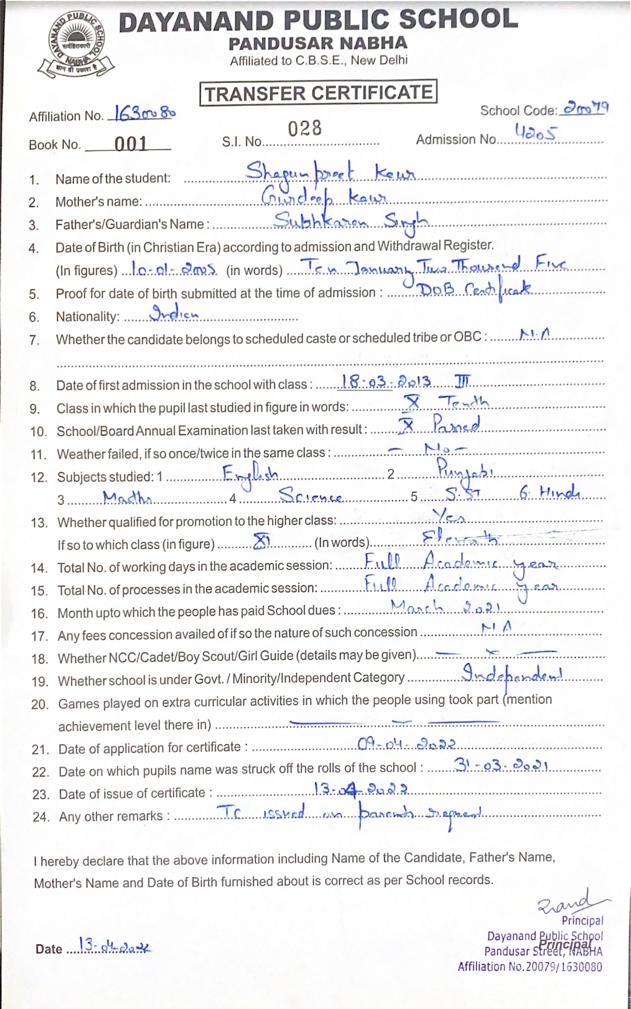 DAYANAND PUBLIC SCHOOL
PANDUSAR NABHA
Affiliated to C.B.S.E., New Delhi
TRANSFER CERTIFICATE
Affiliation No. 1630080 School Code: 20079
Book No. 001 S.I. No. 028 Admission No. 4205
1. Name of the student: Shagunpreet Kaur
2. Mother's name: Gurdeep Kaur
3. Father's/Guardian's Name: Subhkaran Singh
4. Date of Birth (in Christian Era) according to admission and Withdrawal Register.
(In figures) 10-01-2005 (in words) Ten January Two Thousand Five
5. Proof for date of birth submitted at the time of admission: DOB Certificate
6. Nationality: Indian
7. Whether the candidate belongs to scheduled caste or scheduled tribe or OBC: N.A
8. Date of first admission in the school with class: 18-03-2013 III
9. Class in which the pupil last studied in figure in words: X Tenth
10. School/Board Annual Examination last taken with result: X Passed
11. Weather failed, if so once/twice in the same class: - No -
12. Subjects studied: 1 English 2 Punjabi
3 Maths 4 Science 5 S.ST 6 Hindi
13. Whether qualified for promotion to the higher class: Yes
If so to which class (in figure) XI (In words) Eleventh
14. Total No. of working days in the academic session: Full Academic year
15. Total No. of processes in the academic session: Full Academic year
16. Month upto which the people has paid School dues: March 2021
17. Any fees concession availed of if so the nature of such concession NA
18. Whether NCC/Cadet/Boy Scout/Girl Guide (details may be given)
19. Whether school is under Govt. / Minority/Independent Category Independent
20. Games played on extra curricular activities in which the people using took part (mention
achievement level there in)
21. Date of application for certificate: 09-04-2022
22. Date on which pupils name was struck off the rolls of the school: 31-03-2021
23. Date of issue of certificate: 13-04-2022
24. Any other remarks: TC issued on parents request
I hereby declare that the above information including Name of the Candidate, Father's Name,
Mother's Name and Date of Birth furnished about is correct as per School records.
Principal
Dayanand Public School
Principal
Pandusar Street, NABHA
Date 13-04-2022
Affiliation No.20079/1630080